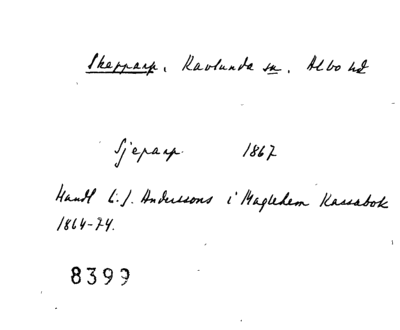 Skepparp, Ravlunda sn, Albo hd
Sjeparp 1867
Handl L. J. Anderssons i Maglehem Kassabok
1864-74.
8399